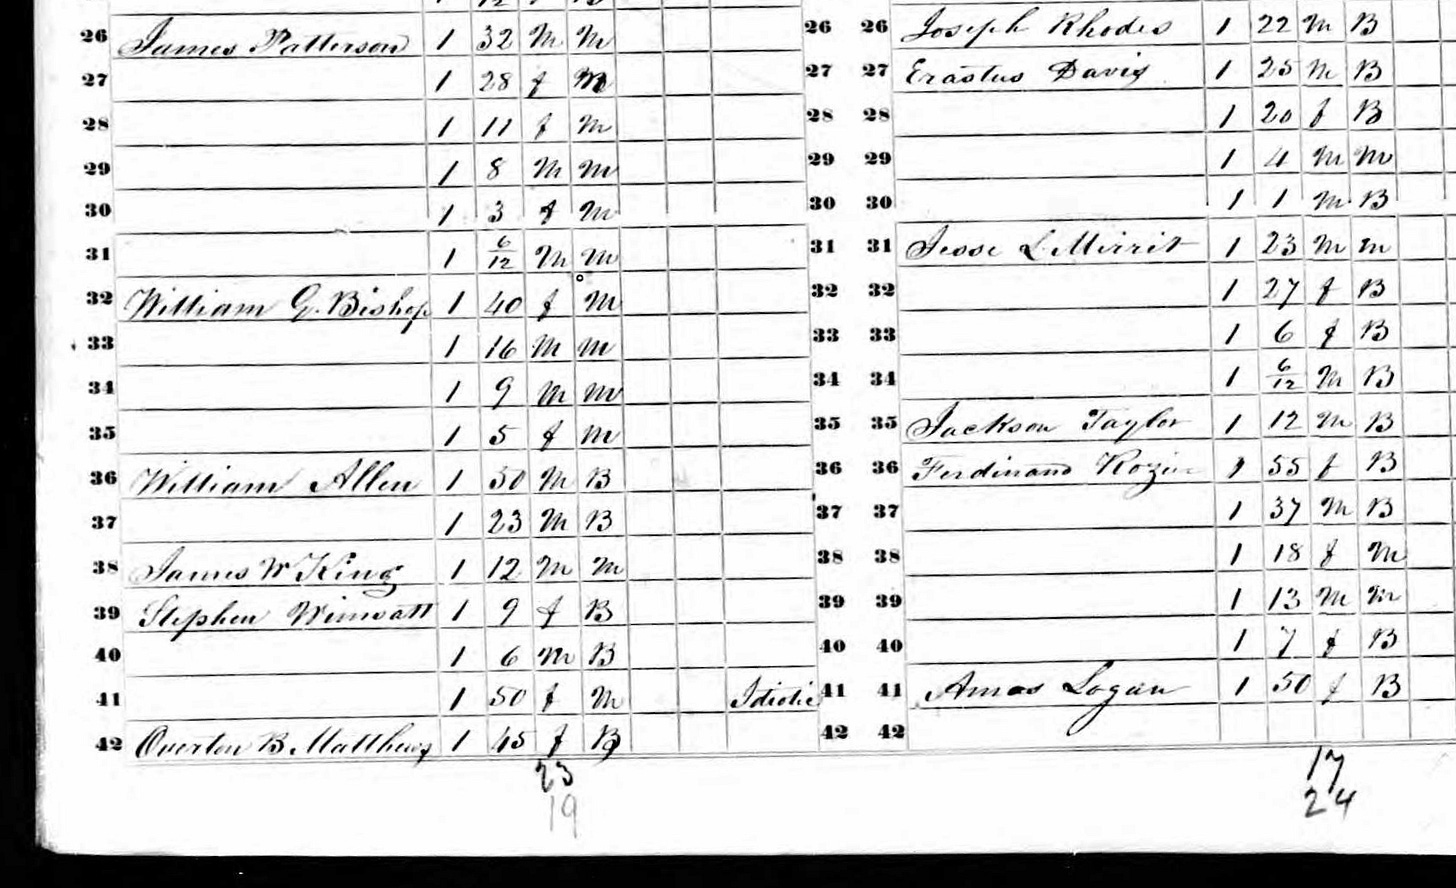 26 James Patterson 1 32 M M
27 1 28 f M
28 1 11 f M
29 1 8 M M
30 1 3 f M
31 1 6/12 M M
32 William G. Bishop 1 40 f M
33 1 16 M M
34 1 9 M M
35 1 5 f M
36 William Allen 1 50 M B
37 1 23 M B
38 James W King 1 12 M M
39 Stephen Wimsatt 1 9 f B
40 1 6 M B
41 1 50 f M Idiotic
42 Overton B Matthews 1 45 f B
23
19
26 26 Joseph Rhodes 1 22 M B
27 27 Erastus Davis 1 25 M B
28 28 1 20 f B
29 29 1 4 M M
30 30 1 1 M B
31 31 Jesse L Mirrit 1 23 M M
32 32 1 27 f B
33 33 1 6 f B
34 34 1 6/12 M B
35 35 Jackson Taylor 1 12 M B
36 36 Ferdinand 1 55 f B
37 37 1 37 M B
38 38 1 18 f M
39 39 1 13 M M
40 40 1 7 f B
41 41 Amos Logan 1 50 f B
42 42
17
24